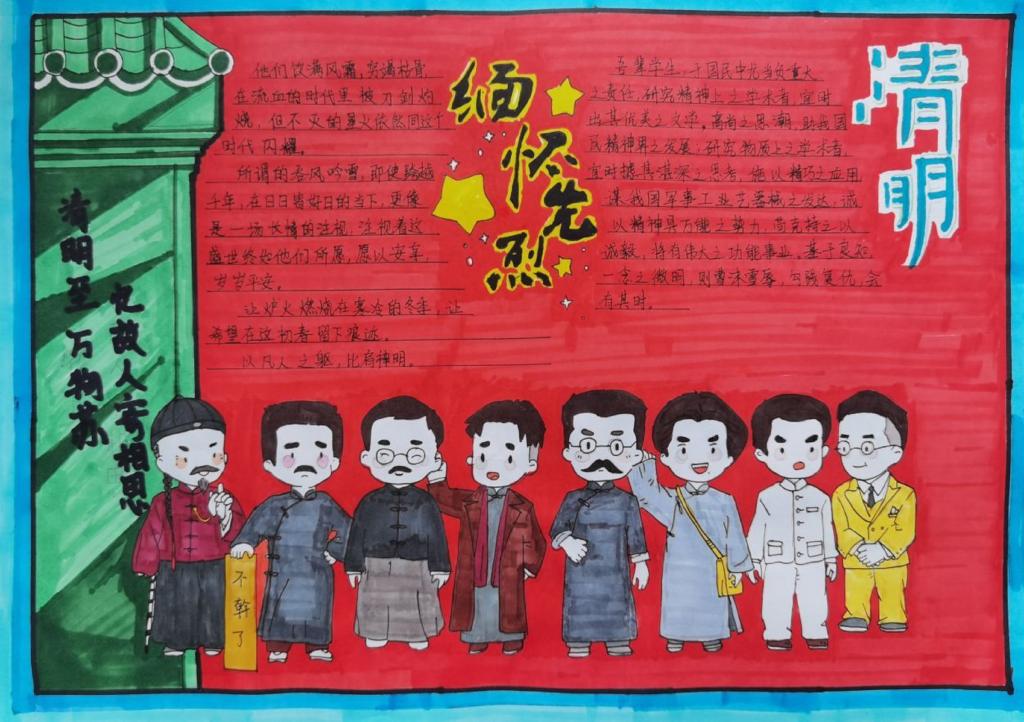 清明
缅怀先烈
清明至万物苏
忆故人寄相思
他们饮满风霜，穷遍枯骨
在流血的时代里被刀剑灼
烧，但不灭的星火依然同这个
时代闪耀。
所谓的春风吟雪，即使跨越
千年，在日日皆好日的当下，更像
是一场长情的注视，注视着这
盛世终如他们所愿，愿以安享，
岁岁平安。
让炉火燃烧在寒冷的冬季，让
希望在这初春留下痕迹。
以凡人之躯，比肩神明。
吾辈学生，于国民中尤当负重大
之责任，研究精神上之学术者，宜时
出其优美之文学，高尚之思潮，助我国
民精神界之发展；研究物质上之学术者，
宜时据其湛深之思考，施以精巧之应用
谋我国军事工业艺器械之发达，诚
以精神具万能之势力，尚克持之以
诚毅，将有伟大之功能事业，基于良知
一念之微明，则曹沫雪辱，勾践复仇，会
有其时。
不幹了